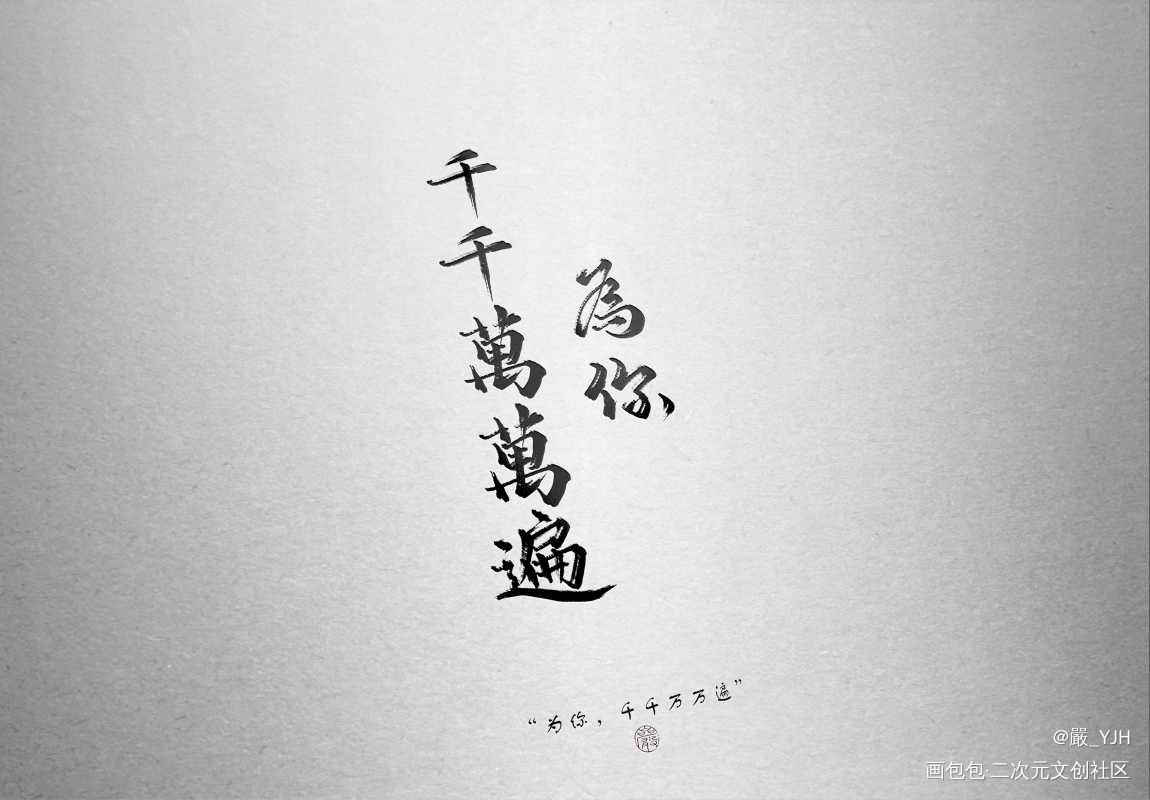 為你
千千萬萬遍
“为你，千千万万遍”
嚴
@嚴_YJH
画包包·二次元文创社区